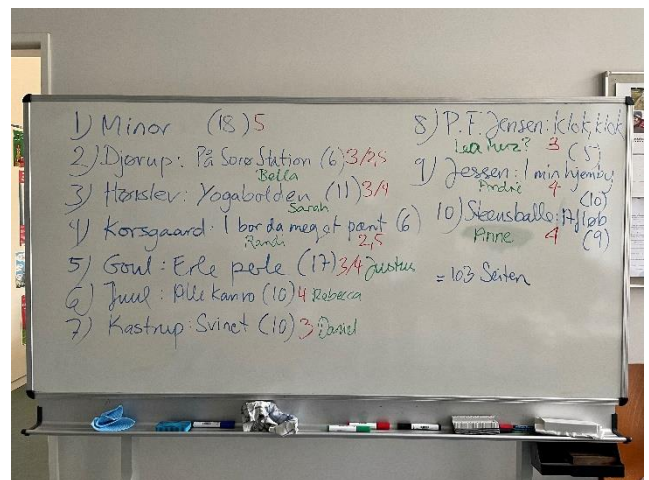 1) Minor (18) 5
2) Djørup: På Sorø Station (6) 3/2,5
Bella
3) Hørslev: Yogabolden (11) 3/4
Sarah
4) Korsgaard: I bor da meget pænt (6)
Randi 2,5
5) Goul: Erle perle (17) 3/4 Justus
6) Juul: Alle kan ro (10) 4 Rebecca
7) Kastrup: Svinet (10) 3 Daniel
8) P.F. Jensen: Klok, klok
Lea 3 (5)
9) Jessen: I min hjemby
André 4 (10)
10) Steensballe: løb
Anne 4 (9)
= 103 Seiten